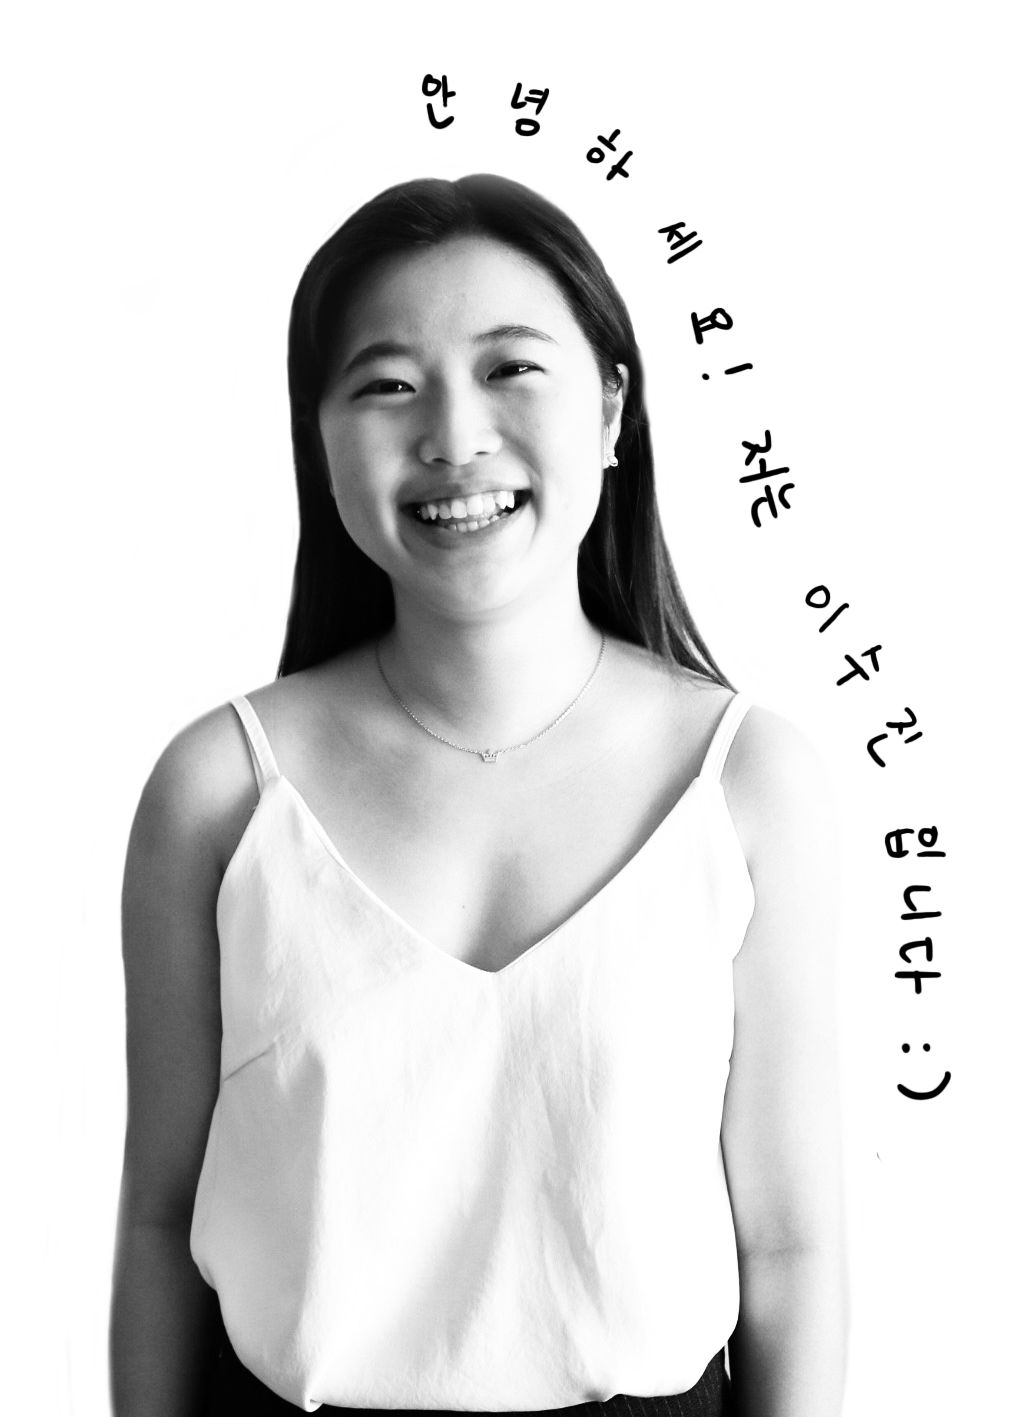 안녕하세요! 저는 이수진 입니다 :)